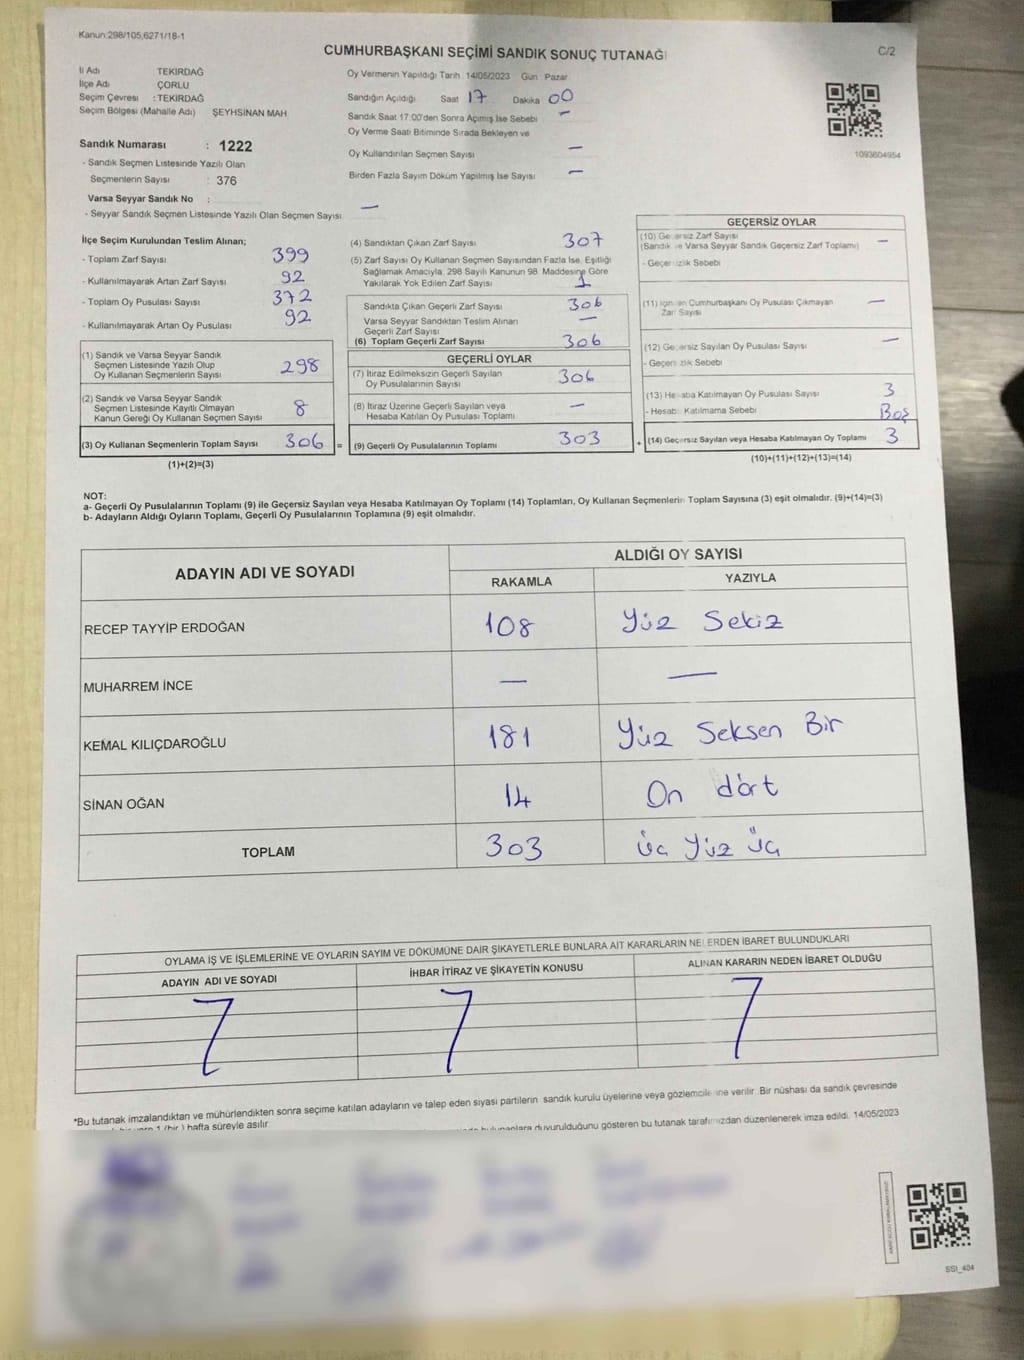 Kanun:298/105,6271/18-1
CUMHURBAŞKANI SEÇİMİ SANDIK SONUÇ TUTANAĞI
C/2
İl Adı TEKİRDAĞ
İlçe Adı ÇORLU
Seçim Çevresi : TEKİRDAĞ
Seçim Bölgesi (Mahalle Adı) ŞEYHSİNAN MAH
Sandık Numarası : 1222
- Sandık Seçmen Listesinde Yazılı Olan
Seçmenlerin Sayısı : 376
Varsa Seyyar Sandık No :
- Seyyar Sandık Seçmen Listesinde Yazılı Olan Seçmen Sayısı —
Oy Vermenin Yapıldığı Tarih 14/05/2023 Gün Pazar
Sandığın Açıldığı Saat 17 Dakika 00
Sandık Saat 17.00'den Sonra Açımış İse Sebebi —
Oy Verme Saati Bitiminde Sırada Bekleyen ve
Oy Kullandırılan Seçmen Sayısı —
Birden Fazla Sayım Döküm Yapılmış İse Sayısı —
1093604954
İlçe Seçim Kurulundan Teslim Alınan;
- Toplam Zarf Sayısı 399
- Kullanılmayarak Artan Zarf Sayısı 92
- Toplam Oy Pusulası Sayısı 372
- Kullanılmayarak Artan Oy Pusulası 92
(1) Sandık ve Varsa Seyyar Sandık
Seçmen Listesinde Yazılı Olup
Oy Kullanan Seçmenlerin Sayısı 298
(2) Sandık ve Varsa Seyyar Sandık
Seçmen Listesinde Kayıtlı Olmayan
Kanun Gereği Oy Kullanan Seçmen Sayısı 8
(3) Oy Kullanan Seçmenlerin Toplam Sayısı 306 =
(1)+(2)=(3)
(4) Sandıktan Çıkan Zarf Sayısı 307
(5) Zarf Sayısı Oy Kullanan Seçmen Sayısından Fazla İse, Eşitliği
Sağlamak Amacıyla, 298 Sayılı Kanunun 98. Maddesine Göre
Yakılarak Yok Edilen Zarf Sayısı 1
Sandıkta Çıkan Geçerli Zarf Sayısı 306
Varsa Seyyar Sandıktan Teslim Alınan
Geçerli Zarf Sayısı —
(6) Toplam Geçerli Zarf Sayısı 306
GEÇERLİ OYLAR
(7) İtiraz Edilmeksizin Geçerli Sayılan
Oy Pusulalarının Sayısı 306
(8) İtiraz Üzerine Geçerli Sayılan veya
Hesaba Katılan Oy Pusulası Toplamı —
(9) Geçerli Oy Pusulalarının Toplamı 303 +
GEÇERSİZ OYLAR
(10) Geçersiz Zarf Sayısı
(Sandık ve Varsa Seyyar Sandık Geçersiz Zarf Toplamı) —
- Geçersizlik Sebebi
(11) İçinden Cumhurbaşkanı Oy Pusulası Çıkmayan
Zarf Sayısı —
(12) Geçersiz Sayılan Oy Pusulası Sayısı —
- Geçersizlik Sebebi
(13) Hesaba Katılmayan Oy Pusulası Sayısı 3
- Hesaba Katılmama Sebebi Boş
(14) Geçersiz Sayılan veya Hesaba Katılmayan Oy Toplamı 3
(10)+(11)+(12)+(13)=(14)
NOT:
a- Geçerli Oy Pusulalarının Toplamı (9) ile Geçersiz Sayılan veya Hesaba Katılmayan Oy Toplamı (14) Toplamları, Oy Kullanan Seçmenlerin Toplam Sayısına (3) eşit olmalıdır. (9)+(14)=(3)
b- Adayların Aldığı Oyların Toplamı, Geçerli Oy Pusulalarının Toplamına (9) eşit olmalıdır.
ADAYIN ADI VE SOYADI
ALDIĞI OY SAYISI
RAKAMLA YAZIYLA
RECEP TAYYİP ERDOĞAN 108 Yüz Sekiz
MUHARREM İNCE — —
KEMAL KILIÇDAROĞLU 181 Yüz Seksen Bir
SİNAN OĞAN 14 On dört
TOPLAM 303 Üç Yüz Üç
OYLAMA İŞ VE İŞLEMLERİNE VE OYLARIN SAYIM VE DÖKÜMÜNE DAİR ŞİKAYETLERLE BUNLARA AİT KARARLARIN NELERDEN İBARET BULUNDUKLARI
ADAYIN ADI VE SOYADI İHBAR İTİRAZ VE ŞİKAYETİN KONUSU ALINAN KARARIN NEDEN İBARET OLDUĞU
*Bu tutanak imzalandıktan ve mühürlendikten sonra seçime katılan adayların ve talep eden siyasi partilerin sandık kurulu üyelerine veya gözlemcilerine verilir. Bir nüshası da sandık çevresinde
1 (bir) hafta süreyle asılır.
duyurulduğunu gösteren bu tutanak tarafımızdan düzenlenerek imza edildi. 14/05/2023
SSI_404